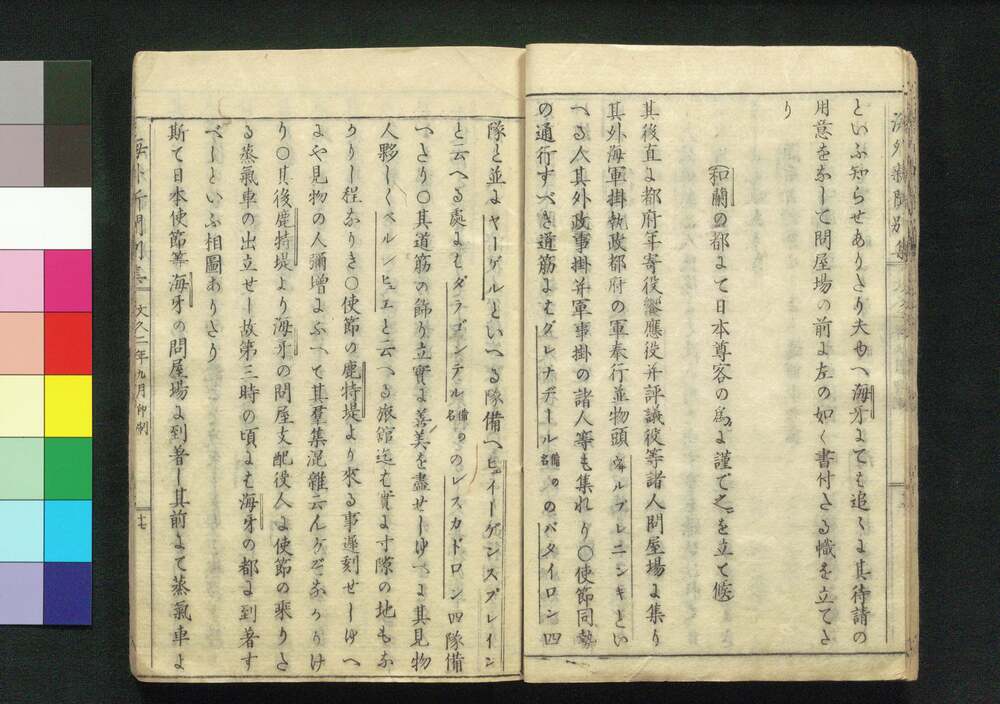 といふ知らせありたり夫ゆへ海牙よても追々よ其待請の
用意をなして問屋場の前よ左の如く書付たる幟を立てた
り
和蘭の都よて日本尊客の為よ謹て之を立て候
其後直よ都府年寄役饗應役并評議役等諸人問屋場よ集り
其外海軍掛執政都府の軍奉行並物頭ウィルブレニンキとい
へる人其外政事掛并軍事掛の諸人等も集れり〇使節同勢
の通行すべき道筋よはグレナヂール備名のバタイロン四
隊と並よヤーゲルといへる隊備へピイーゲンスプレイン
と云へる處よはダラゴンデル備名のレスカドロン四隊備
へたり〇其道筋の飾り立實よ善美を盡せしゆへよ其見物
人夥しくベルレヒュエと云へる旅館迄は實よ寸隙の地もな
かりし程なりき〇使節の鹿特堤より來る事遅刻せしゆへ
よや見物の人彌増よふへて其羣集混雜云んかたなかりけ
り〇其後鹿特堤より海牙の問屋支配役人よ使節の乘りた
る蒸氣車の出立せし故第三時の頃よは海牙の都よ到着す
べしといふ相圖ありたり
斯て日本使節等海牙の問屋場よ到着し其前よて蒸氣車よ
海外新聞別集
文久二年九月印刷
十七